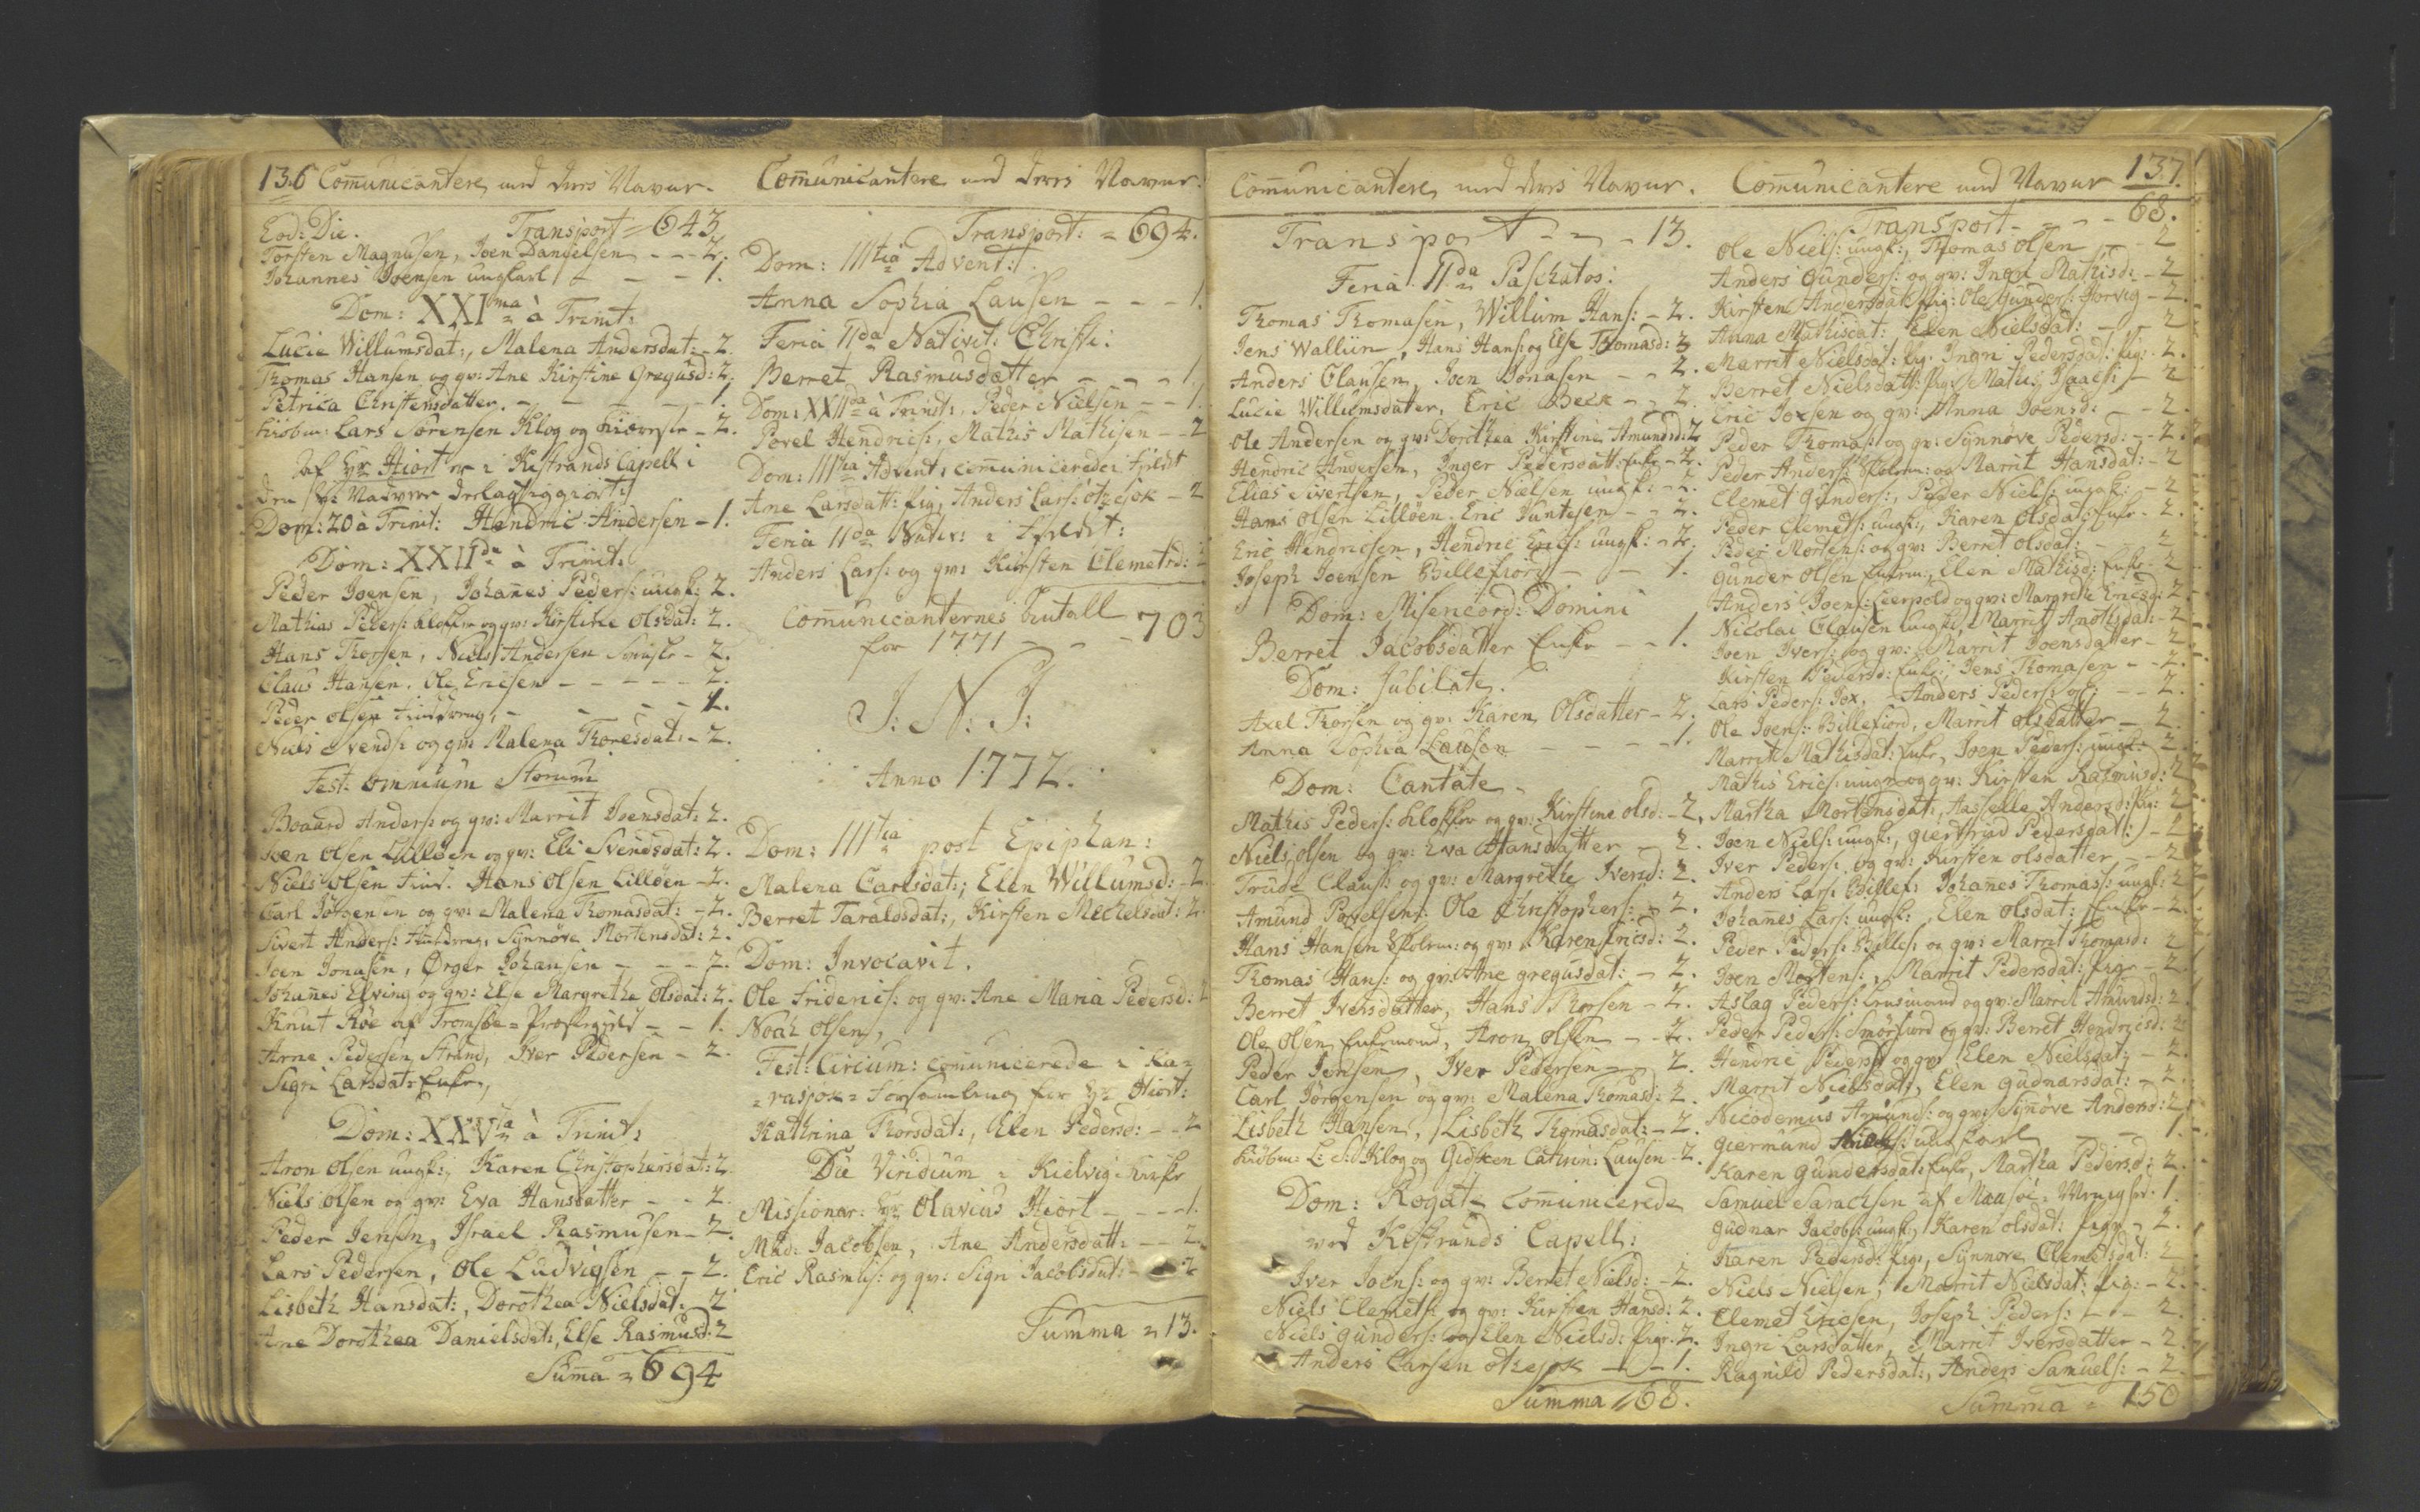 136 Com̄unicantere med deres Navne.
Eod: Die. Transport = 643
Torsten Magnusen, Joen Danielsen - - - 2.
Johannes Joensen ungkarl - - - 1.
Dom: XXIma à Trinit:
Lucie Willumsdat:, Malena Andersdat: - 2.
Thomas Hansen og qv: Ane Kirstine Gregusd: 2.
Petrica Christensdatter. - - - - 1.
Kiøbm: Lars Sørensen Klog og - 2.
af Hr: Hiort er i Kistrands Capell i
Dom: 20 à Trinit: Hendric Andersen - 1.
Dom: XXIIda à Trinit:
Peder Joensen, Johan̄es Peders: ungk: 2.
Mathias Peders: klokker og qv: Kirstine Olsdat: 2.
Hans Thorsen, Niels Andersen - 2.
Claus Hansen, Ole Ericsen - - - - - 2.
Peder Olsen - - - - 1.
Niels Svends: og qv: Malena Thoresdat: - 2.
Fest: omnium Storum
Boaard Anders: og qv: Marrit Joensdat: 2.
Joen Olsen Lilløen og qv: Eli Svendsdat: 2.
Niels Olsen Hans Olsen Lilløen - 2.
Carl Jørgensen og qv: Malena Thomasdat: - 2.
Sivert Anders: Synnøve Mortensdat: 2.
Joen Jonasen, Ørger Johansen - - - 2.
Johan̄es Elving og qv: Else Margrethe Olsdat: 2.
Knut Røe af Tromsøe = Præstegield - - 1.
Arne Pedersen Strand, Iver Pedersen - 2.
Sigri Larsdat: Enke,
Dom: XXVta à Trinit:
Aron Olsen ungk:, Karen Christophersdat: 2.
Niels Olsen og qv: Eva Hansdatter - - 2.
Peder Jensen, Israel Rasmusen - 2.
Lars Pedersen, Ole Ludvigsen - - 2.
Lisbeth Hansdat:, Dorothea Nielsdat: 2
Ane Dorothea Danielsdat:, Else Rasmusd: 2
Sum̄a = 694
Com̄unicantere med deres Navne.
Transport: = 694.
Dom: IIItia Advent:
Anna Sophia Lausen - - - 1.
Feria IIda Nativit: Christi:
Berret Rasmusdatter - - - 1.
Dom: XXIIda à Trinit:, Peder Nielsen - - 1.
Povel Hendrics:, Mathis Mathisen - - 2
Dom: IIItia Advent: com̄unicerede i
Ane Larsdat: pig, Anders Lars: - 2
Feria IIda Nativ: i
Anders Lars: og qv: Kirsten Clemetsd: 2
Com̄unicanternes Antall
for 1771 - - - 703
J: N: J:
Anno 1772.
Dom: IIItia post Epiphan:
Malena Carlsdat:, Elen Willumsd: - 2
Berret Taraldsdat:, Kirsten Michelsdat: 2.
Dom: Invocavit.
Ole Friderics: og qv: Ane Maria Pedersd: 2
Noah Olsen,
Fest: Circum: com̄unicerede i Ka=
=rasjok = Forsamling for Hr: Hiort:
Kathrina Thorsdat:, Elen Pedersd: - - 2
Die Viridium i Kielvig = kirke
Missionar: Hr: Olavius Hiort - - - 1.
Mad: Jacobsen, Ane Andersdatt: - - 2.
Eric Rasmus: og qv: Sigri Jacobsdat: - 2
Summa = 13.
Com̄unicantere med deres Navne.
Transport - - - 13.
Feria IIda Paschatos:
Thomas Thomasen, Willum Hans: - 2.
Jens Walliin, Hans Hans: og Else Thomasd: 3
Anders Clausen, Joen Jonasen - - 2.
Lucie Willumsdatter, Eric Beck - - 2.
Ole Andersen og qv: Dorthea Kirstine Amundsd: 2
Hendric Andersen, Inger Pedersdatt: Enke - 2.
Elias Sivertsen, Peder Nielsen ungk: - 2.
Hans Olsen Lilløen, Eric - - 2.
Eric Hendricsen, Hendric Erics: ungk: - 2.
Joseph Joensen Billefiord - - 1.
Dom: Misericord: Domini
Berret Jacobsdatter Enke - - 1.
Dom: Jubilate.
Axel Thorsen og qv: Karen Olsdatter - 2.
Anna Sophia Lauson - - - - 1.
Dom: Cantate.
Mathis Peders: klokker og qv: Kirstine Olsd: - 2.
Niels Olsen og qv: Eva Hansdatter - 2.
Trude Claus: og qv: Margrethe Iversd: 2.
Amund Povelsen, Ole Christophers: - 2.
Hans Hansen Skolem: og qv: Karen Ericsd: 2.
Thomas Hans: og qv: Ane Gregusdat: - 2.
Berret Iversdatter, Hans Thorsen - 2.
Ole Olsen Enkemand, Aron Olsen - - 2.
Peder Jensen, Iver Pedersen - - 2.
Carl Jörgensen og qv: Malena Thomasd: 2.
Lisbeth Hansen, Lisbeth Thomasdat: - 2.
Kiøbm: L: S: Klog og Gidsken Cathrin: Lausen - 2.
Dom: Rogat = com̄unicerede
ved Kistrands Capell:
Iver Joens: og qv: Berret Nielsd: - 2.
Niels Clemets: og qv: Kirsten Hansd: 2.
Niels Gunders: og Elen Nielsd: pige: 2.
Anders Larsen - - 1.
Summa = 68.
Com̄unicantere med Navne 137.
Transport - - - 68.
Ole Niels: ungk:, Thomas Olsen - - 2
Anders Gunders: og qv: Ingri Mathisd: - 2
Kirsten Andersdat: pig: Ole Gunders: - 2.
Anna Mathisdat: Elen Nielsdat: - - 2
Marrit Nielsdat: pig: Ingri Pedersdat: pig: 2.
Berret Nielsdatt: pig: Mathis Isaacs: - 2
Eric Joxsen og qv: Anna Joensd: - - 2.
Peder Thomas: og qv: Synnøve Pedersd: - - 2.
Peder Anders: Skolem: og Marrit Hansdat: - 2
Clemet Gunders:, Peder Niels: ungk: - 2
Peder Clemets: ungk:, Karen Olsdat: Enke - 2.
Peder Mortens: og qv: Berret Olsdat: - 2
Gunder Olsen Enkem:, Elen Mathisd: Enke - 2
Anders Joens: Leerpold og qv: Margrethe Ericsd: 2
Nicolai Clausen ungk:, Marrit Amothsdat: - 2
Joen Ivers: og qv: Marrit Joensdatter - 2
Kirsten Pedersd: Enke, Jens Thomasen - - 2.
Lars Peders: Jox, Anders Peders: - - 2.
Ole Joens: Billefiord, Marrit Olsdatter - 2.
Marrit Mathisdat: Enke, Joen Peders: ungk: 2.
Mathis Erics: og qv: Kirsten Rasmusd: 2
Martha Mortensdat:, Andersd: pig: 2
Joen Niels: ungk:, Giertrud Pedersdat: - 2
Iver Peders: og qv: Kirsten Olsdatter - - 2
Anders Lars: Billef: Johan̄es Thomass: ungk: 2
Johan̄es Lars: ungk:, Elen Olsdat: Enke - 2.
Peder Peders: Billef: og qv: Marrit Thomasd: 2
Joen Mortens:, Marrit Pedersdat: pige - 2
Aslag Peders: og qv: Marrit Amundsd: 2.
Peder Peders: Smörfiord og qv: Berret Hendricsd: 2
Hendric Peders: og qv: Elen Nielsdat: - 2.
Marrit Nielsdat:, Elen Gudnarsdat: - 2.
Nicodemus Amunds: og qv: Syn̄øve Andersd: 2.
Giermund Niels: ungkarl - - 1.
Karen Gundersdat: Enke, Martha Pedersd: 2.
Samuel Sarachsen af Maasöe = 1.
Gudnar Jacobs: ungk:, Karen Olsdat: pige - 2.
Karen Pedersd: pige, Synnøve Clemetsdat: 2
Niels Nielsen, Marrit Nielsdat: pig: - 2.
Clemet Ericsen, Joseph Peders: - - 2
Ingri Larsdatter, Marrit Iversdatter - 2.
Ragnild Pedersdat:, Anders Samuels: - 2
Summa = 150